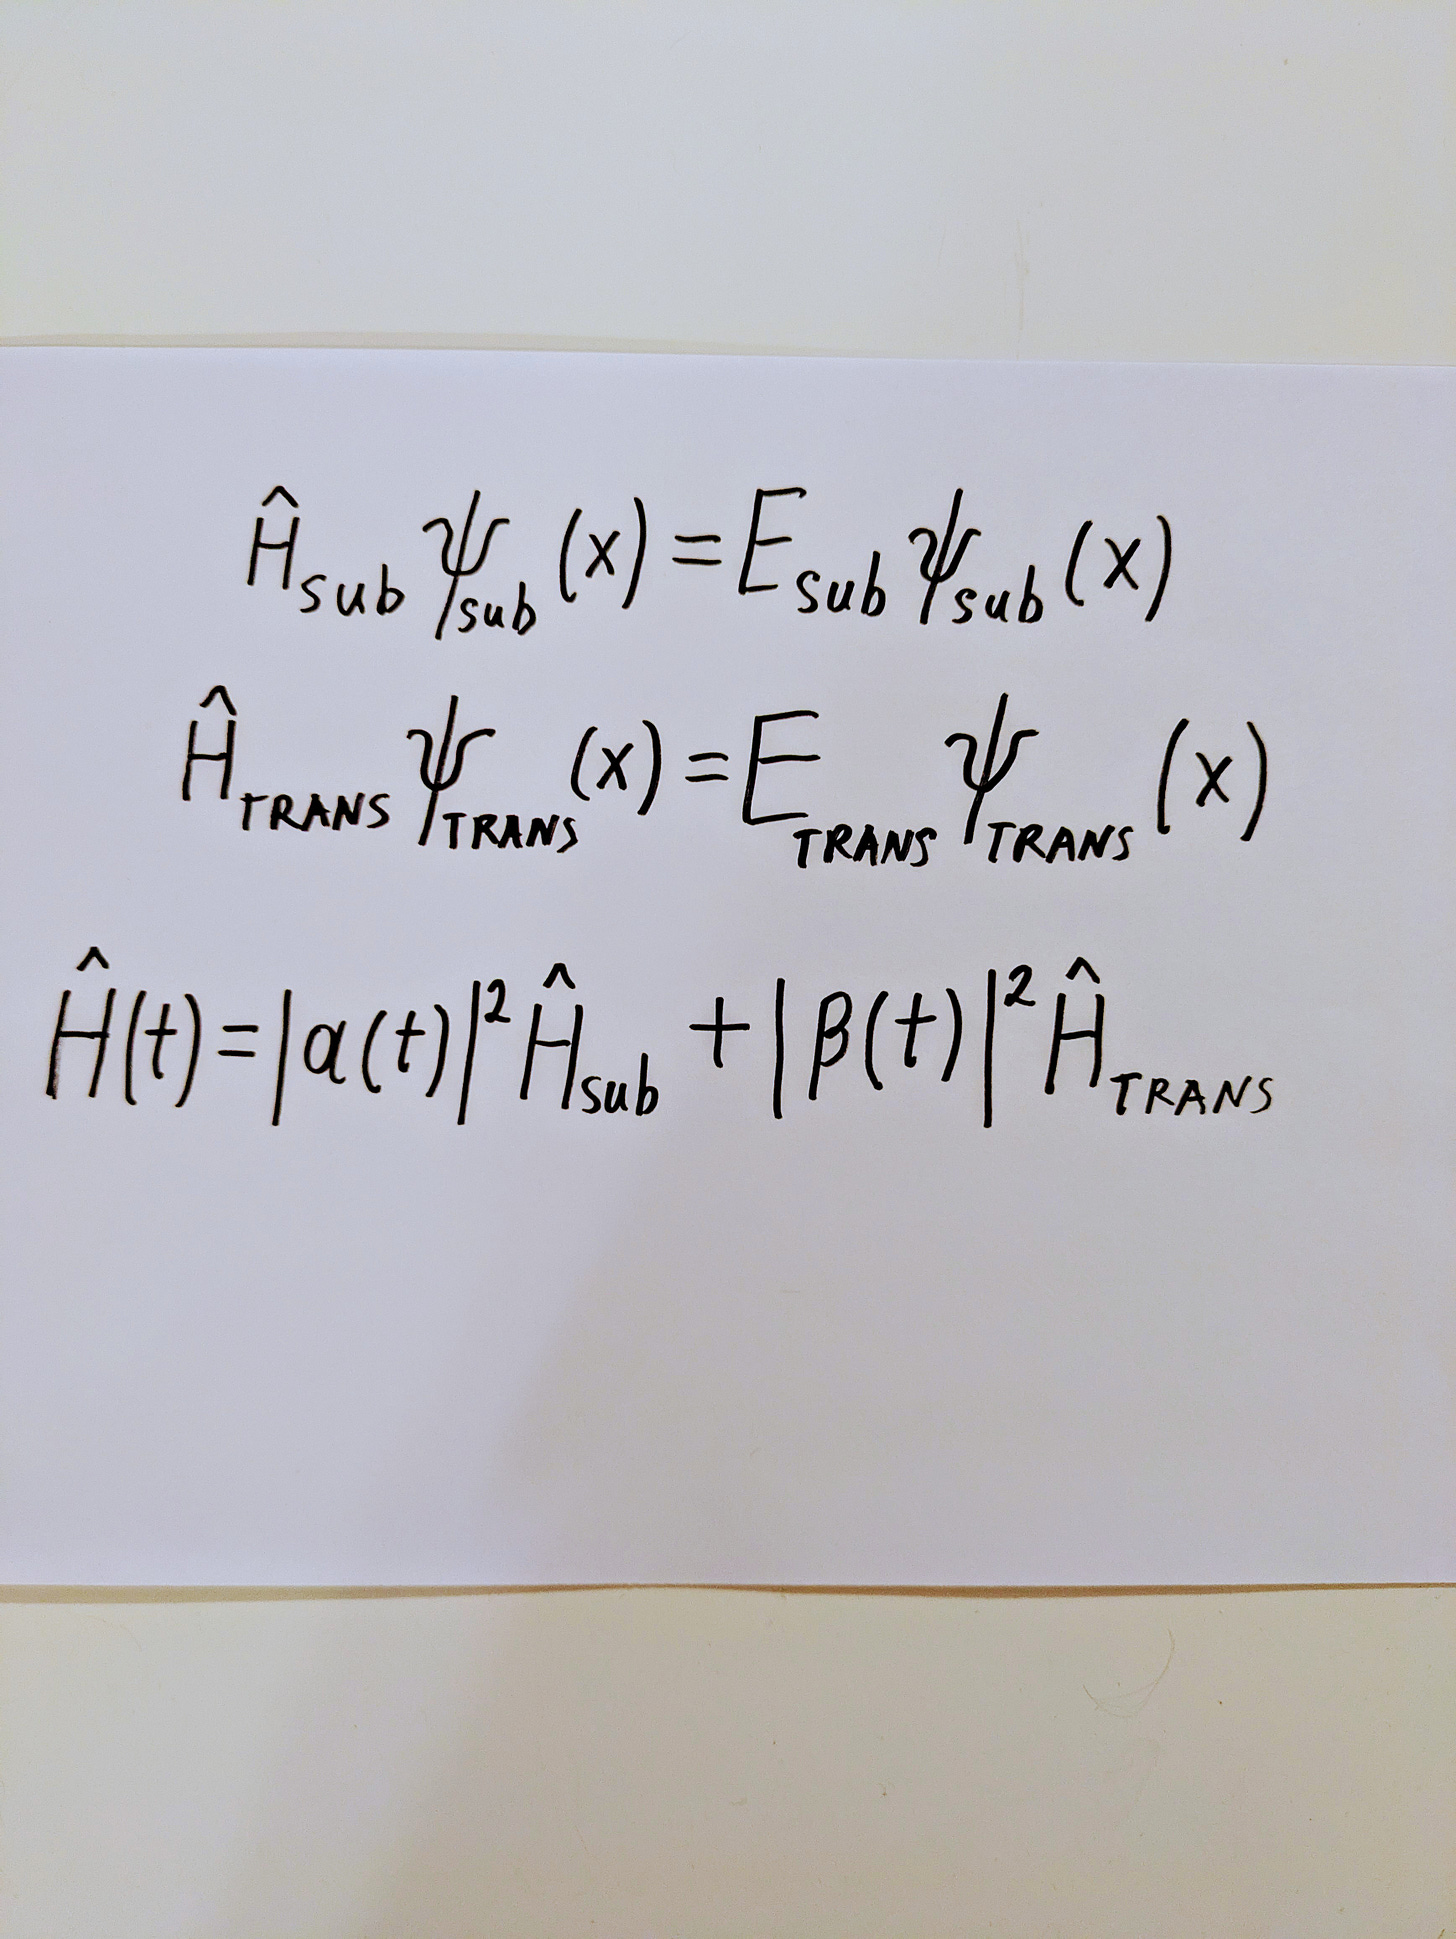 Ĥ_sub ψ_sub (x) = E_sub ψ_sub (x)
Ĥ_TRANS ψ_TRANS (x) = E_TRANS ψ_TRANS (x)
Ĥ(t) = |α(t)|² Ĥ_sub + |β(t)|² Ĥ_TRANS